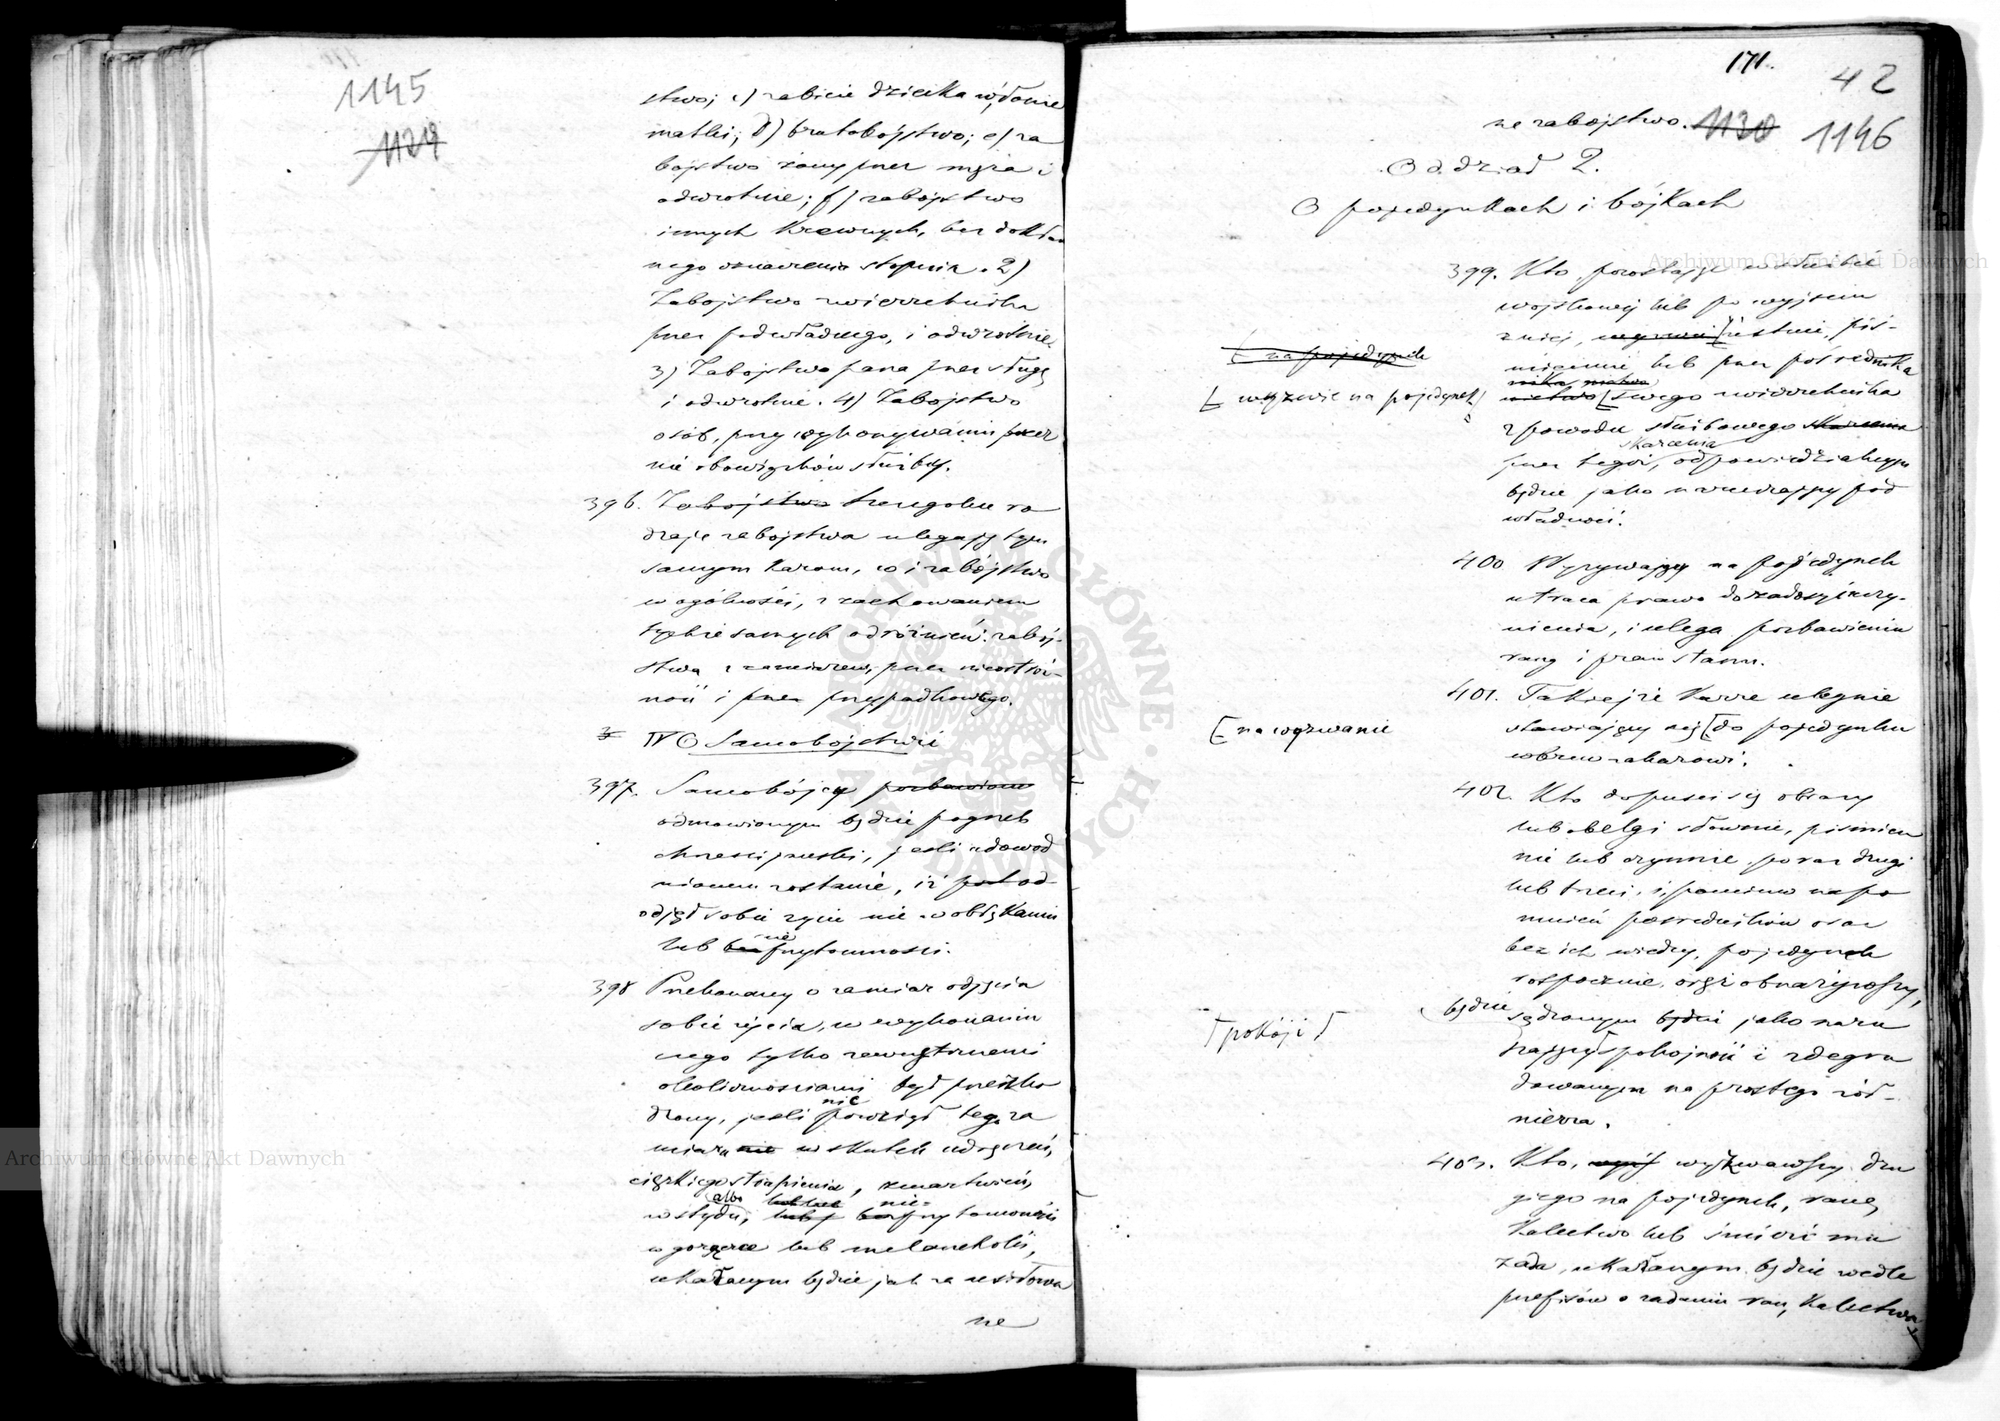 1145
1129
stwo; c) zabicie dziecka w łonie
matki; d) bratobójstwo; e) za
bójstwo żony przez męża i
odwrotnie; f) zabójstwo
innych krewnych, bez dokład
nego oznaczenia stopnia. 2)
Zabójstwo zwierzchnika
przez podwładnego, i odwrotnie.
3) Zabójstwo pana przez sługę
i odwrotnie. 4) Zabójstwo
osób, przy wykonywaniu przez
nie obowiązków służby.
396. Zabójstwo szczególne ro
dzaje zabójstwa ulegają tym
samym karom, co i zabójstwo
w ogólności, z zachowaniem
tychże samych odróżnień: zabój-
stwa z zamiarem, przez nieostroż-
ność i przez przypadkowego.
IV O Samobójstwie
397. Samobójcy pozbawione
odmówionym będzie pogrzeb
chrześcijański, jeśli udowod
nionem zostanie, iż pod od-
odjął sobie życie nie w obłąkaniu
nie
lub bez przytomności.
398 Przekonany o zamiar odjęcia
sobie życia, w wykonaniu
czego tylko zewnętrznemi
okolicznościami był przeszko
nie
dzony, jeśli powziął tego za
miaru nie w skutek udręczeń,
ciężkiego strapienia, zmartwień,
albo nie-
wstydu, lub bez przytomności
w gorączce lub melancholii,
ukaranym będzie jak za usiłowa
ne
171.
42
ne zabójstwo. 1130 1146
Oddział 2.
O pojedynkach i bójkach
399. Kto, pozostając w służbie
wojskowej lub po wyjściu
z niej, ustnie, piś-
[ na pojedynek
miennie lub przez pośrednika
[ wyzwie na pojedynek
[swego zwierzchnika
z powodu służbowego skarcenia
skarcenia
przez tegoż, odpowiedzialnym
będzie jako naruszający pod
władność.
400 Wyzywający na pojedynek
utraca prawo do zadosyćuczy-
nienia, i ulega pozbawieniu
rang i praw stanu.
401. Takiejże karze ulegnie
[na wyzwanie
stawiający się [do pojedynku
wbrew zakazowi.
402. Kto dopuści się obrazy
lub obelgi słownie, piśmien
nie lub czynnie po raz drugi
lub trzeci, i, pomimo napo
mnień pośredników oraz
bez ich wiedzy, pojedynek
rozpocznie, oręż obnażywszy,
będzie
sądzonym będzie jako naru
[pokój i [
szający spokojność i zdegra
dowanym na prostego żoł-
nierza.
403. Kto, wyzwawszy dru
giego na pojedynek, ranę,
kalectwo lub śmierć mu
zada, ukaranym będzie wedle
przepisów o zadaniu ran, kalectwa